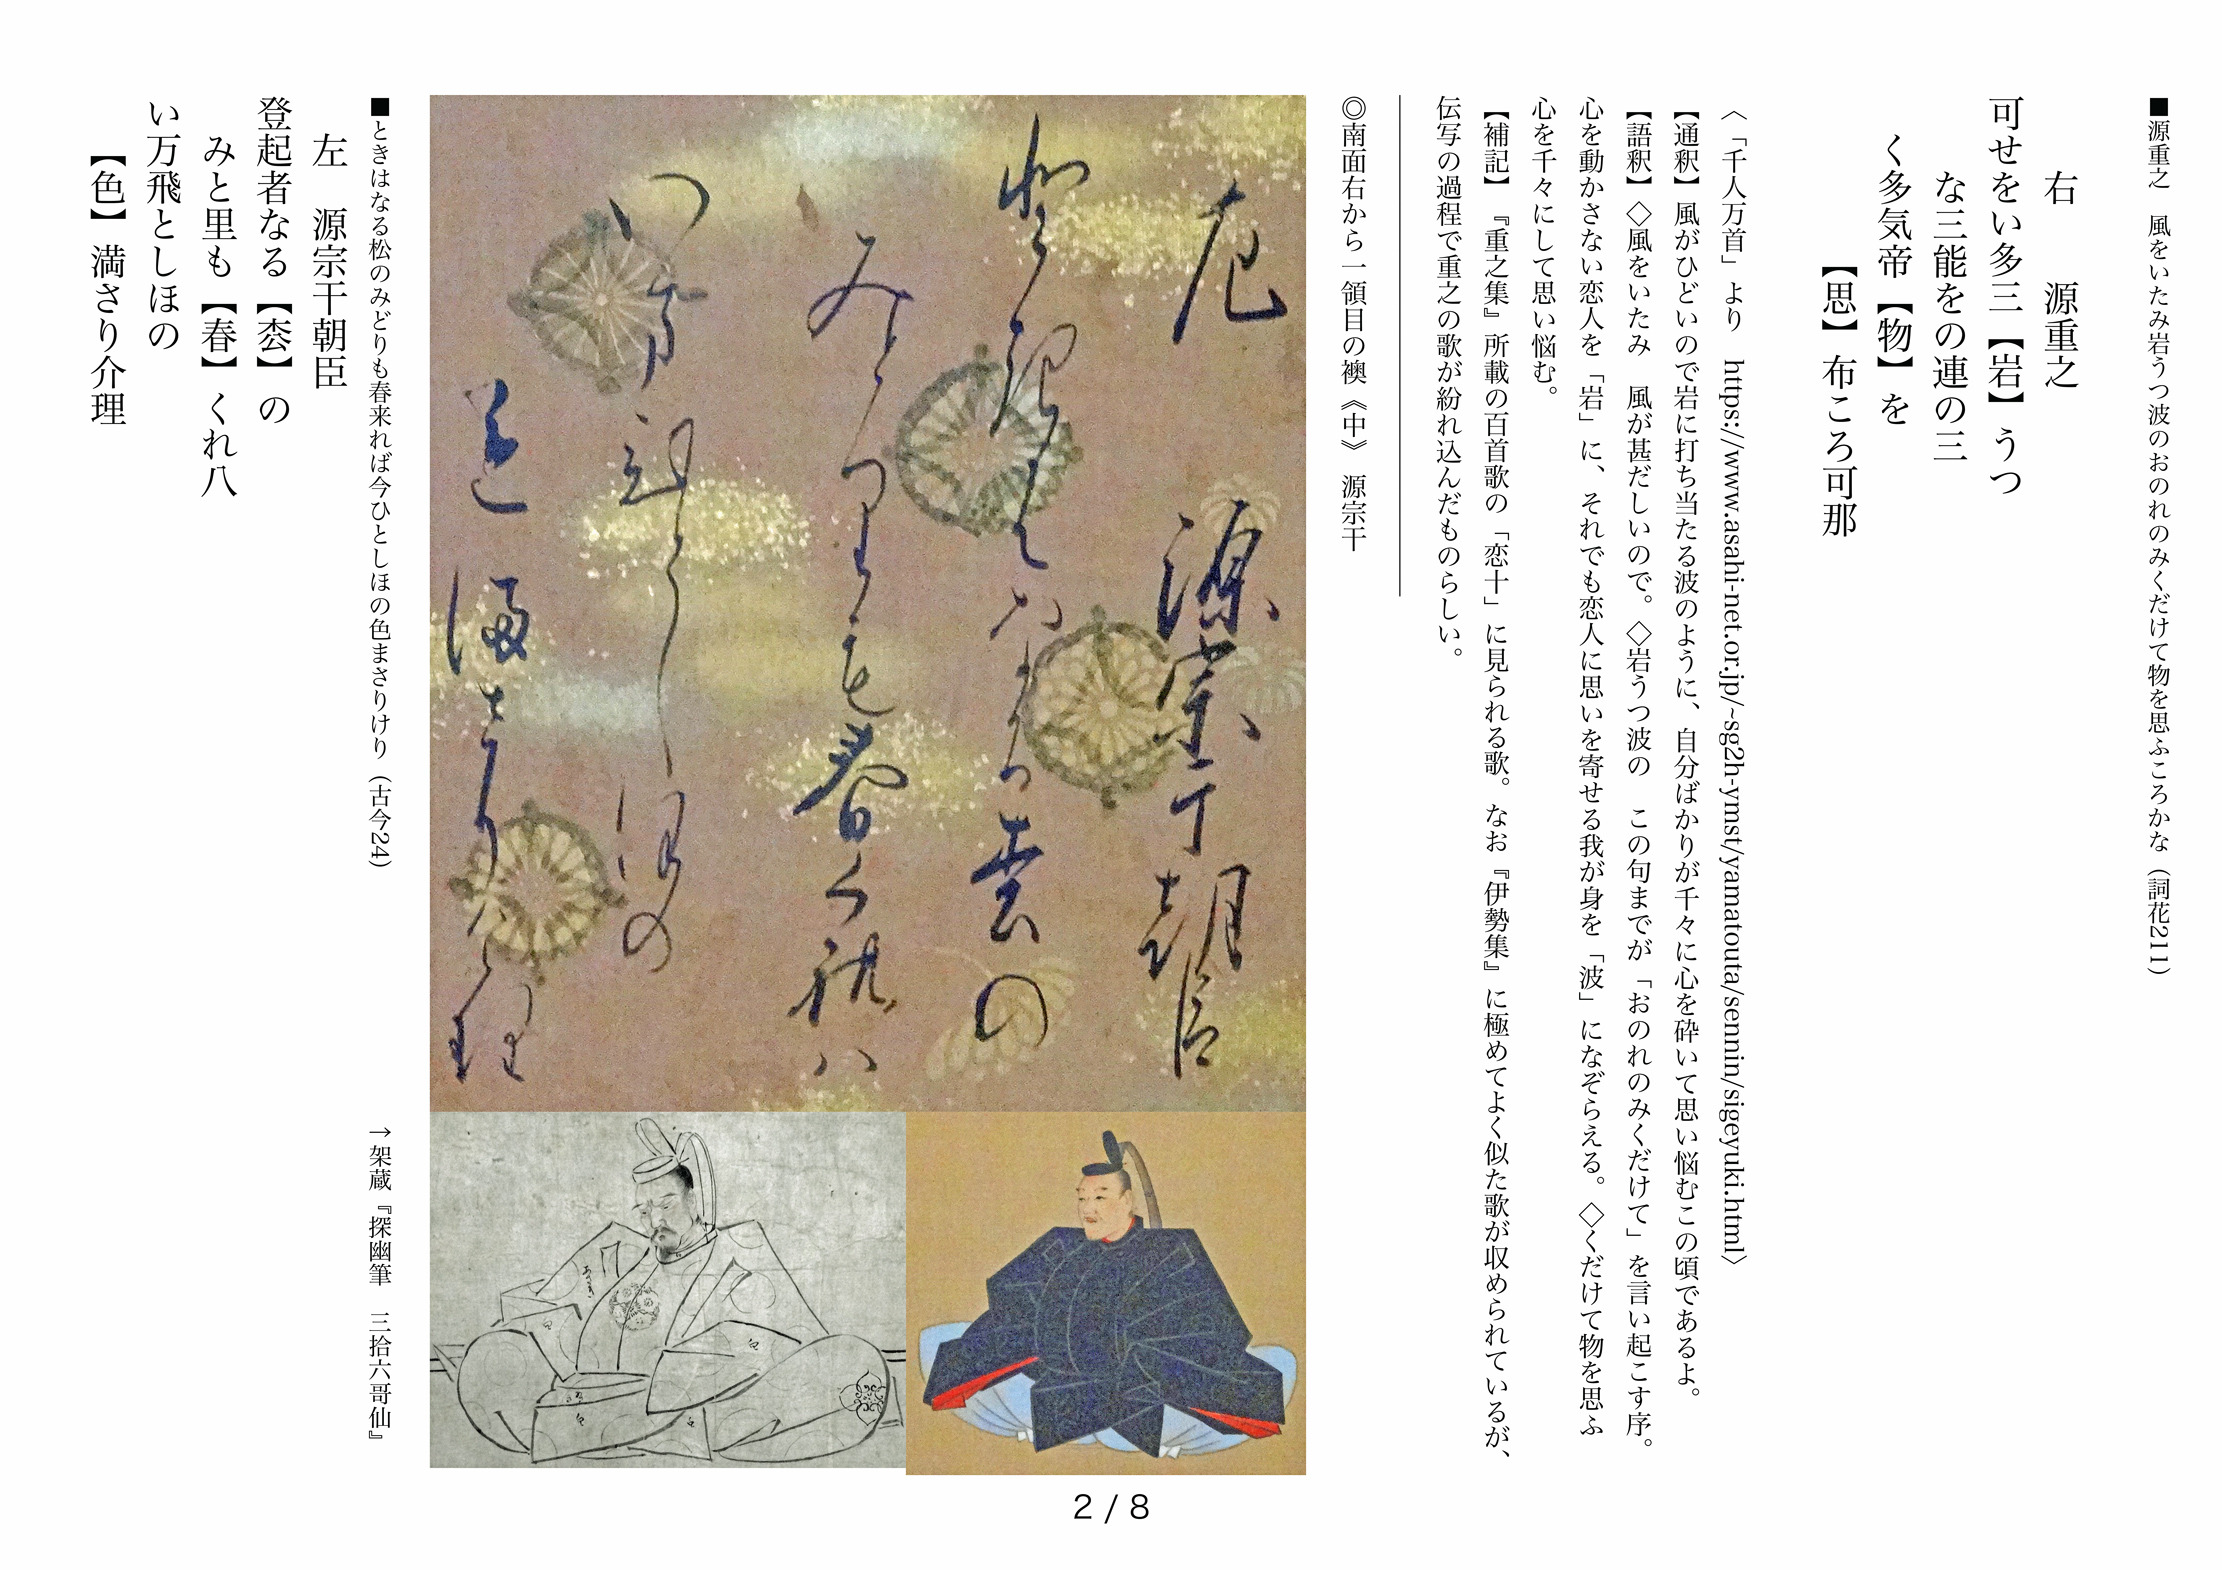 ■源重之　風をいたみ岩うつ波のおのれのみくだけて物を思ふころかな（詞花211）
右　　源重之
可せをい多三【岩】うつ
な三能をの連の三
く多気帝【物】を
【思】布ころ可那
〈「千人万首」より　https://www.asahi-net.or.jp/~sg2h-ymst/yamatouta/sennin/sigeyuki.html〉
【通釈】風がひどいので岩に打ち当たる波のように、自分ばかりが千々に心を砕いて思い悩むこの頃であるよ。
【語釈】◇風をいたみ　風が甚だしいので。◇岩うつ波の　この句までが「おのれのみくだけて」を言い起こす序。
心を動かさない恋人を「岩」に、それでも恋人に思いを寄せる我が身を「波」になぞらえる。◇くだけて物を思ふ
心を千々にして思い悩む。
【補記】『重之集』所載の百首歌の「恋十」に見られる歌。なお『伊勢集』に極めてよく似た歌が収められているが、
伝写の過程で重之の歌が紛れ込んだものらしい。
◎南面右から一領目の襖《中》　源宗干
左　源宗干朝臣
登起者なる枩の
みと里も春くれ八
い万飛としほの
色満さり介理
■ときはなる松のみどりも春来れば今ひとしほの色まさりけり（古今24）
→架蔵『探幽筆　三拾六哥仙』
左　源宗干朝臣
登起者なる【枩】の
みと里も【春】くれ八
い万飛としほの
【色】満さり介理
2 / 8